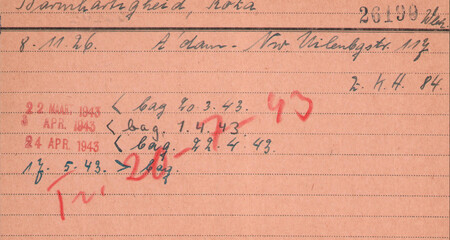 Barmhartigheid, Roza
26190
8.11.26. A'dam - Nw Uilenbgstr. 117
Z. K. H. 84.
22 MAART 1943 < bag 20.3.43.
5 APR. 1943 < bag. 1.4.43.
24 APR. 1943 < bag. 22.4.43.
17. 5.43. > bag.
Tr. 20-7-43